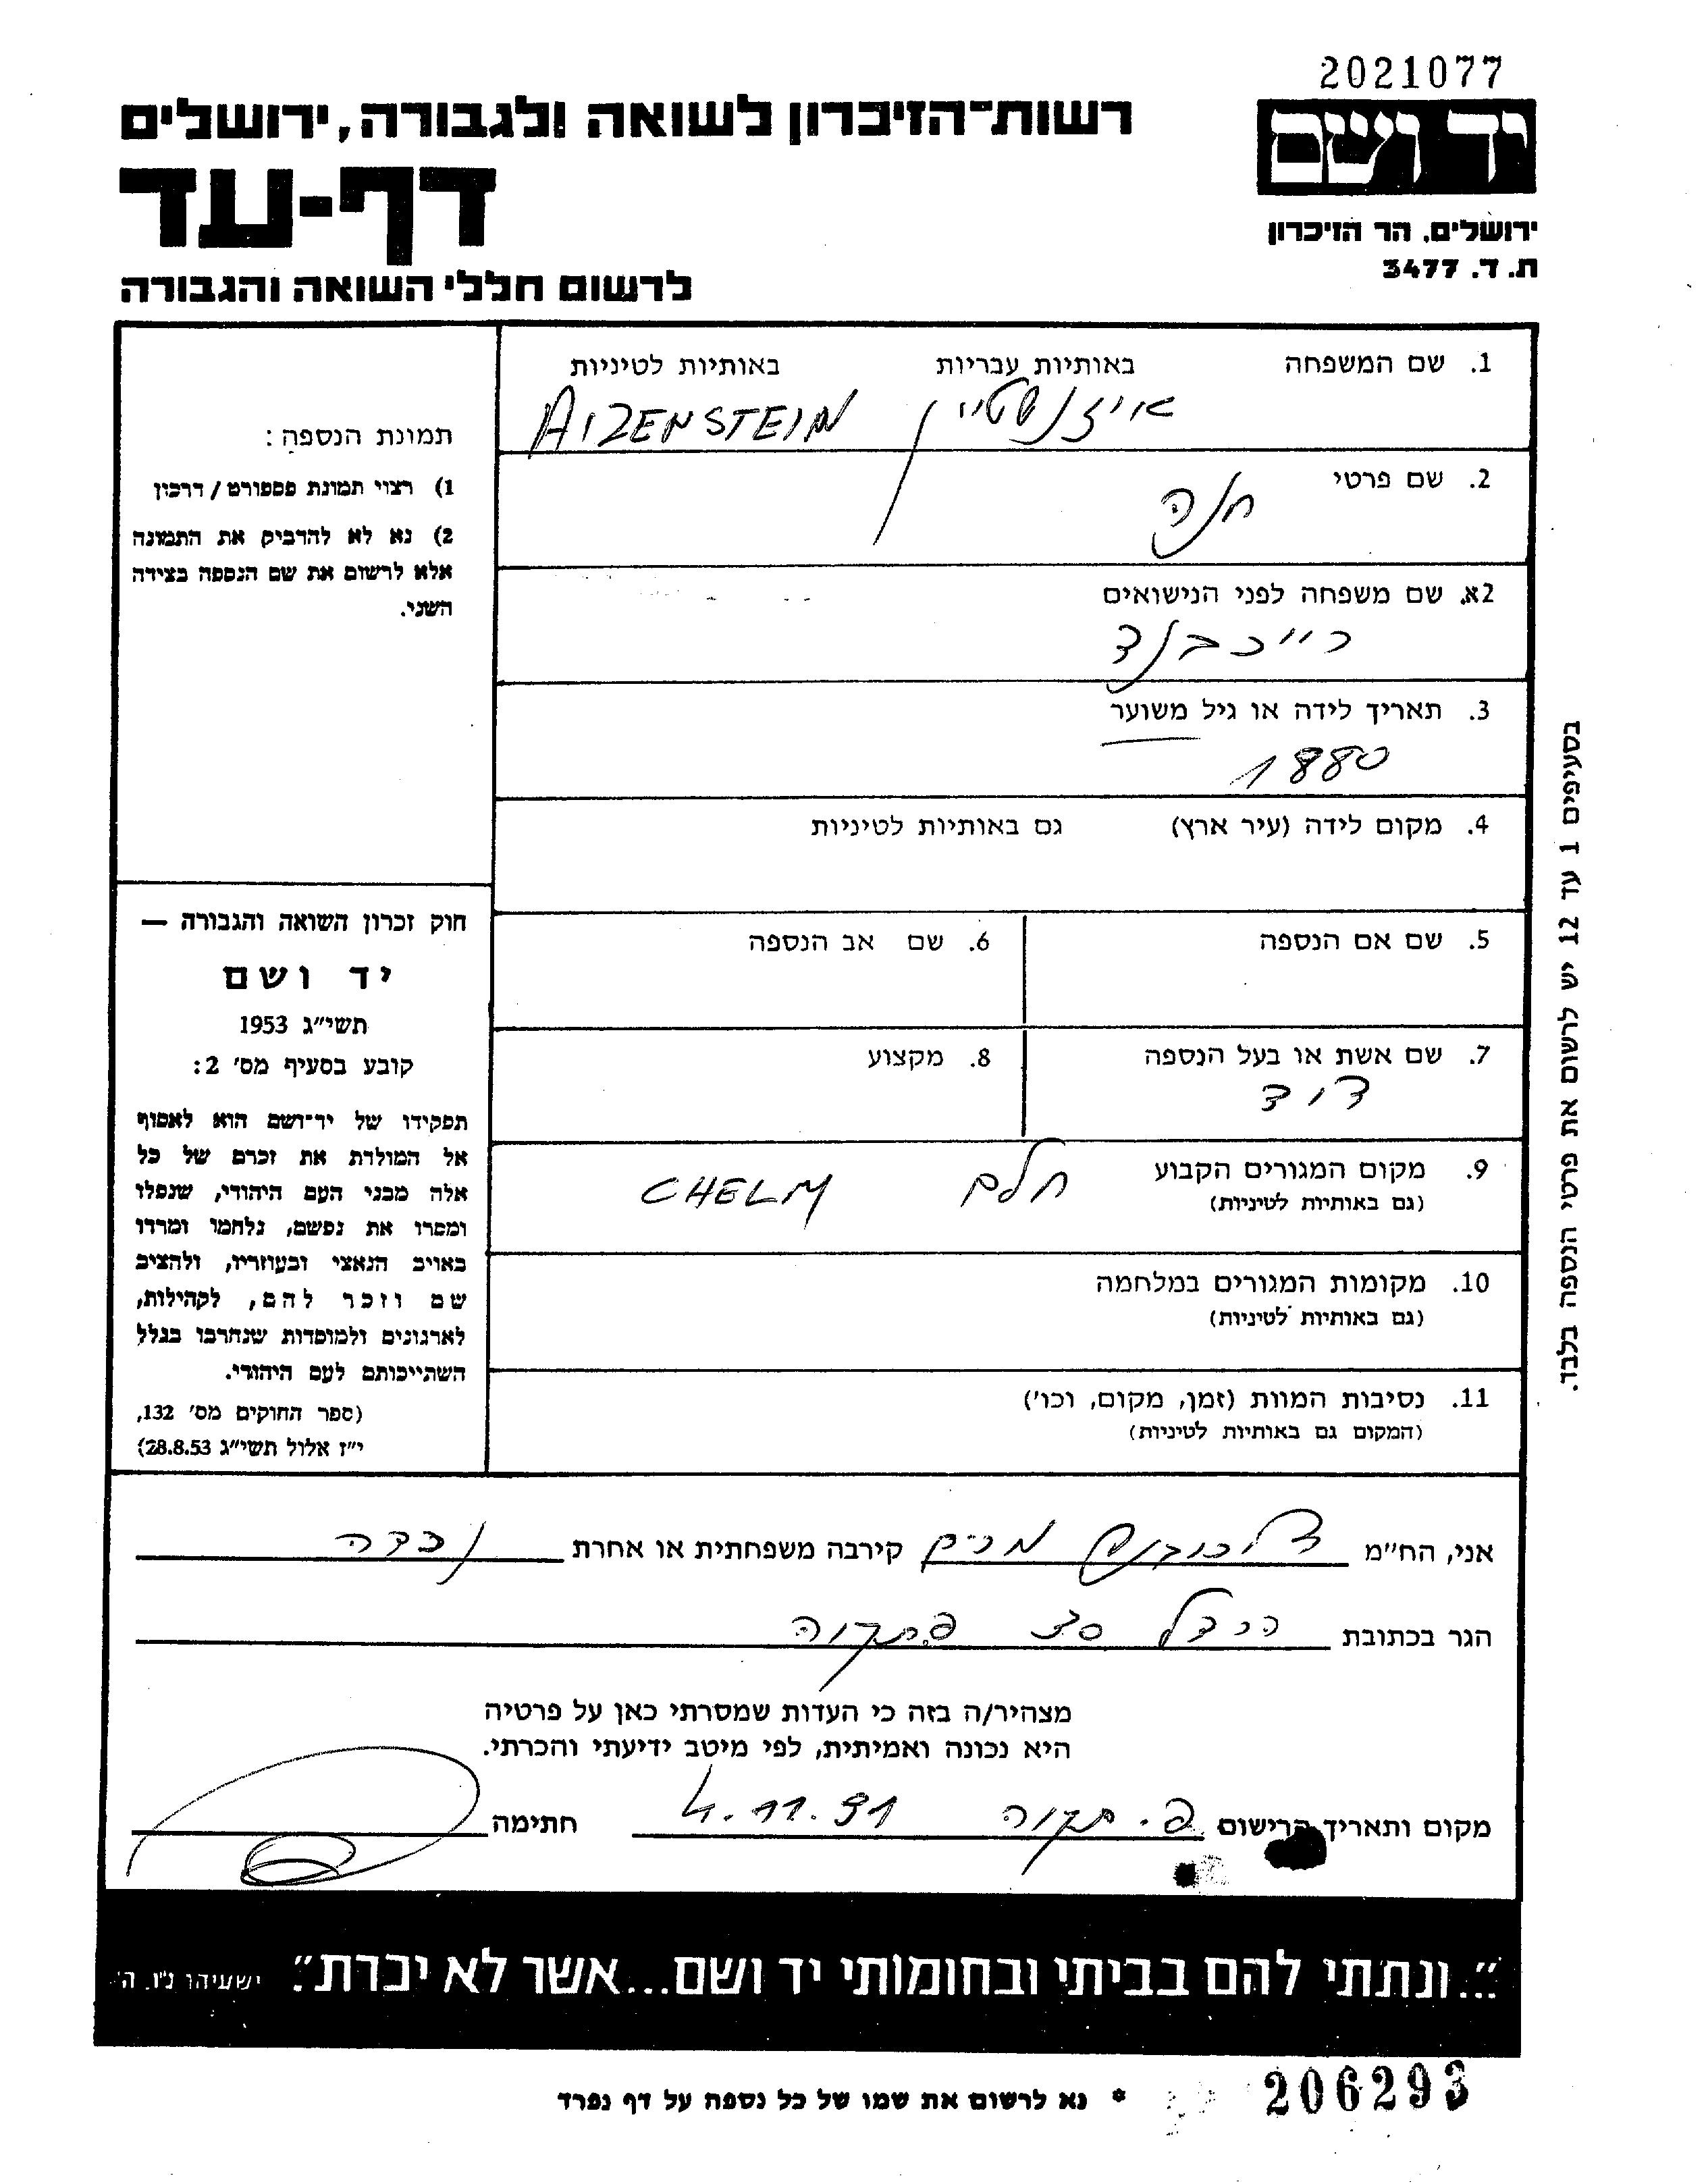 2021077
רשות־הזיכרון לשואה ולגבורה, ירושלים
יד ושם
דף-עד
ירושלים, הר הזיכרון
ת. ד. 3477
לרשום חללי השואה והגבורה
1. שם המשפחה באותיות עבריות באותיות לטיניות
איזנשטיין AIZENSTEIN
2. שם פרטי
חנה
2א. שם משפחה לפני הנישואים
רייכבנד
3. תאריך לידה או גיל משוער
1880
4. מקום לידה (עיר ארץ) גם באותיות לטיניות
5. שם אם הנספה 6. שם אב הנספה
7. שם אשת או בעל הנספה 8. מקצוע
דוד
9. מקום המגורים הקבוע חלם CHELM
(גם באותיות לטיניות)
10. מקומות המגורים במלחמה
(גם באותיות לטיניות)
11. נסיבות המוות (זמן, מקום, וכו')
(המקום גם באותיות לטיניות)
תמונת הנספה:
1) רצוי תמונת פספורט / דרכון
2) נא לא להדביק את התמונה
אלא לרשום את שם הנספה בצידה
השני.
חוק זכרון השואה והגבורה —
יד ושם
תשי"ג 1953
קובע בסעיף מס' 2:
תפקידו של יד־ושם הוא לאסוף
אל המולדת את זכרם של כל
אלה מבני העם היהודי, שנפלו
ומסרו את נפשם, נלחמו ומרדו
באויב הנאצי ובעוזריו, ולהציב
שם וזכר להם, לקהילות,
לארגונים ולמוסדות שנחרבו בגלל
השתייכותם לעם היהודי.
(ספר החוקים מס' 132,
י"ז אלול תשי"ג 28.8.53)
בסעיפים 1 עד 12 יש לרשום את פרטי הנספה בלבד.
אני, הח"מ מרים קירבה משפחתית או אחרת נכדה
הגר בכתובת פ.תקוה
מצהיר/ה בזה כי העדות שמסרתי כאן על פרטיה
היא נכונה ואמיתית, לפי מיטב ידיעתי והכרתי.
מקום ותאריך הרישום פ. תקוה 4.11.91 חתימה
"...ונתתי להם בביתי ובחומותי יד ושם...אשר לא יכרת". ישעיהו נ"ו, ה'
206293
* נא לרשום את שמו של כל נספה על דף נפרד